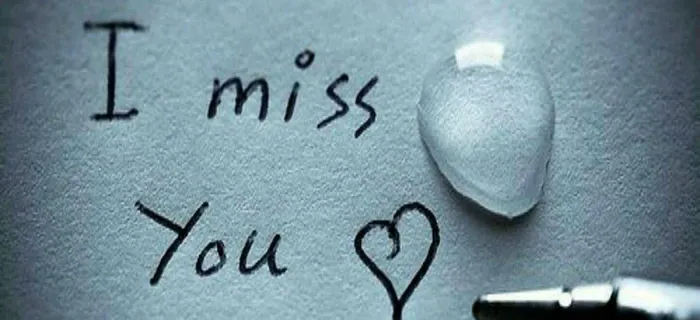 I miss
You